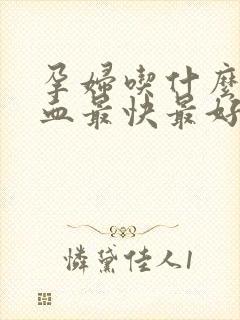 孕婦喫什麽
血最快最好
憐黛佳人1